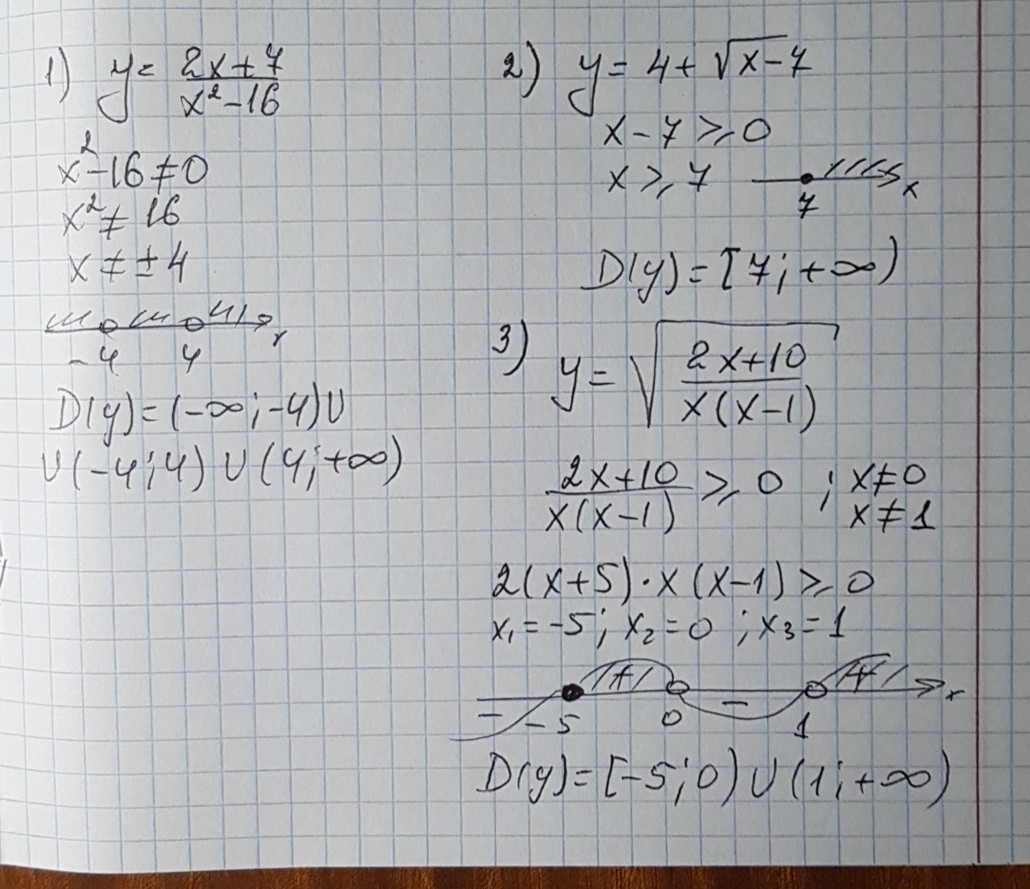 1) y = (2x+7)/(x²-16)
x²-16≠0
x²≠ 16
x ≠ ±4
-4 4 x
D(y)=(-∞;-4)∪
∪(-4;4)∪(4;+∞)
2) y= 4+ √(x-7)
x-7 ⩾ 0
x ⩾ 7
7 x
D(y)=[7;+∞)
3) y= √((2x+10)/(x(x-1)))
(2x+10)/(x(x-1)) ⩾ 0 ; x≠0
x≠1
2(x+5)·x(x-1)⩾0
x₁=-5; x₂=0 ; x₃=1
- + - + x
-5 0 1
D(y)=[-5;0)∪(1;+∞)